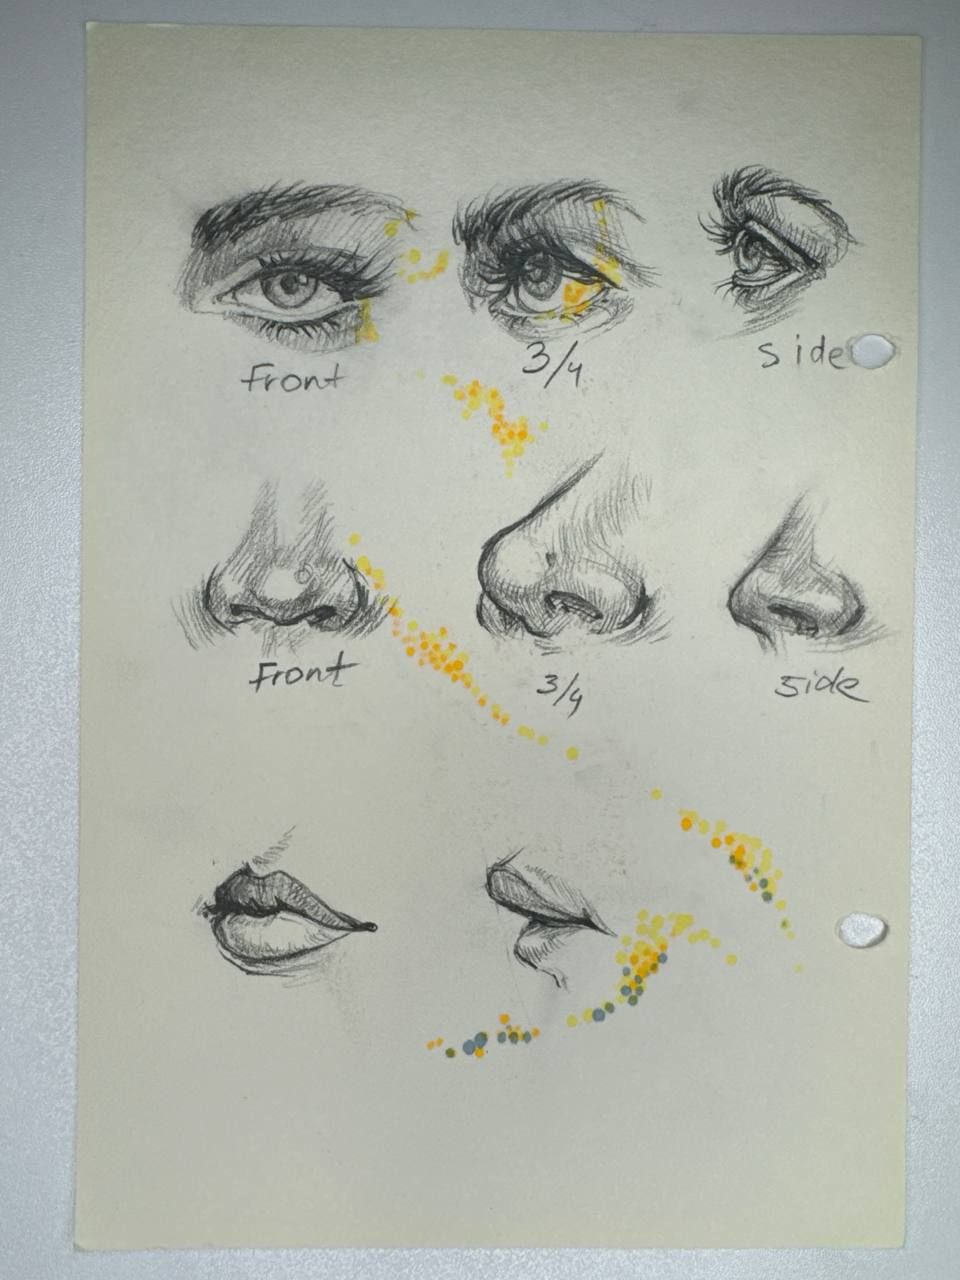 Front
3/4
Side
Front
3/4
Side